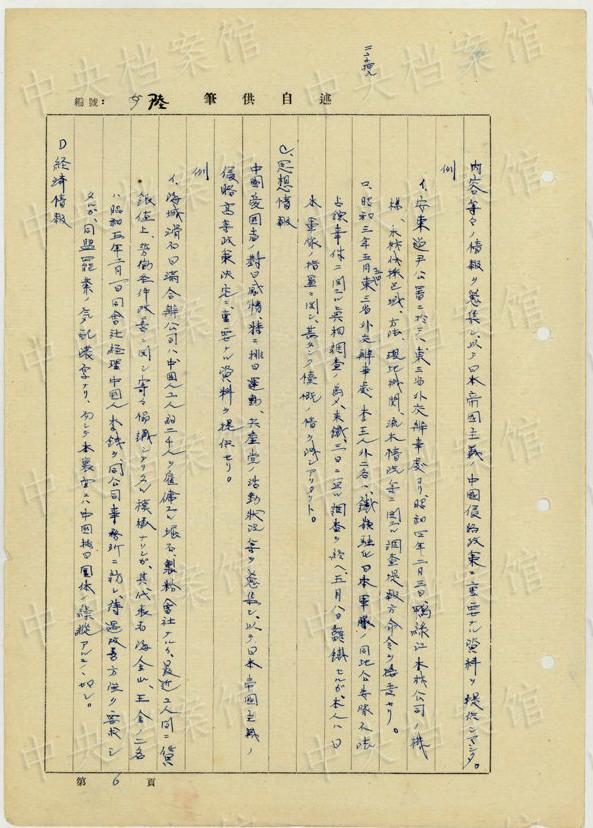 述自供筆
編號:
陸
内容等々ノ情報ヲ蒐集シ以テ日本帝国主義ノ中國侵略政策ニ重要ナル資料ヲ提供シマシタ。
例
イ、安東道尹公署ニ於テハ東三省外交辦事處ヨリ、昭和四年二月三日鴨緑江木材公司ノ機
様、木材伐採区域、方法、現地機関、流木情況等ニ関スル調査提報方命令ヲ
ロ、昭和三年五月東三省外交辦事處 王外二名ハ、鐵嶺駐屯日本軍隊ノ同地公安隊不法
占領事件ニ関スル真相調査ノ為メ、来鐵三日ニ亘ル調査ヲ終ヘ、五月八日離鐵セルガ、本人ハ日
本軍隊ノ措置ニ関シ、甚ダシク憤慨ノ情ヲ洩シアリタリト。
C、思想情報
中國愛国者ノ對日感情、特ニ排日運動、共産党ノ活動状況等ヲ蒐集シ、以テ日本帝国主義ノ
侵略高等政策決定ニ重要ナル資料ヲ提供セリ。
例
イ、海城滑石日満合辦公司ハ中國人工人約二千人ヲ雇傭スル堀石、製粉會社ナルガ、最近工人間ニ賃
銀値上、労働条件改善ニ関シ寄々協議シアリタル模様ナリシガ、其代表者海金山、王金ノ二名
ハ昭和五年二月一日同會社経理中國人 ヲ同公司事務所ニ訪レ、待遇改善方強ク要求シ
タルガ、同盟罷業ノ気配濃厚ナリ、而シテ本裏面ニハ中國抗日團体ノ操縦アルモノノ如シ。
D 経済情報
第 6 頁
中央档案馆